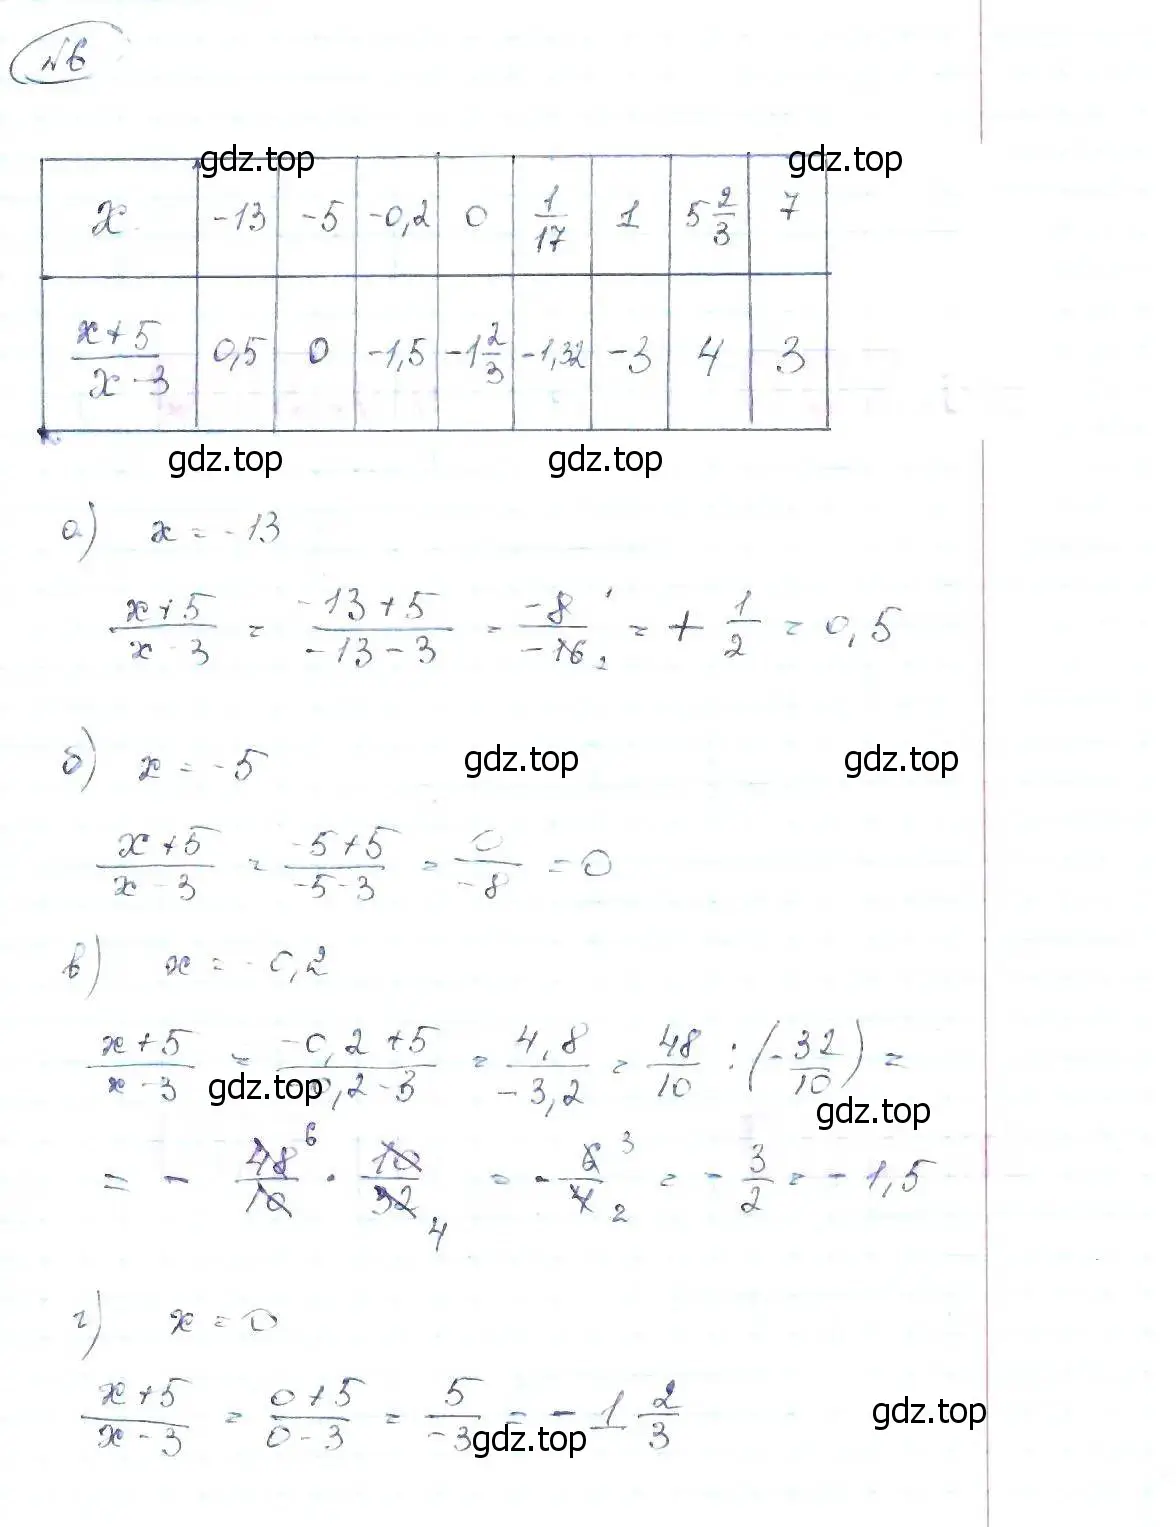 №6
gdz.top gdz.top
x | -13 | -5 | -0,2 | 0 | 1/17 | 1 | 5 2/3 | 7
(x+5)/(x-3) | 0,5 | 0 | -1,5 | -1 2/3 | -1,32 | -3 | 4 | 3
gdz.top gdz.top
а) x = -13
(x+5)/(x-3) = (-13+5)/(-13-3) = -8/-16 1 2 = + 1/2 = 0,5
б) x = -5 gdz.top gdz.top
(x+5)/(x-3) = (-5+5)/(-5-3) = 0/-8 = 0
в) x = -0,2
(x+5)/(x-3) = (-0,2+5)/(-0,2-3) = 4,8/-3,2 = 48/10 : (-32/10) =
gdz.top gdz.top
= - 48/10 6 · 10/32 4 = - 6/4 3 2 = - 3/2 = -1,5
г) x = 0
(x+5)/(x-3) = (0+5)/(0-3) = 5/-3 = -1 2/3
gdz.top gdz.top